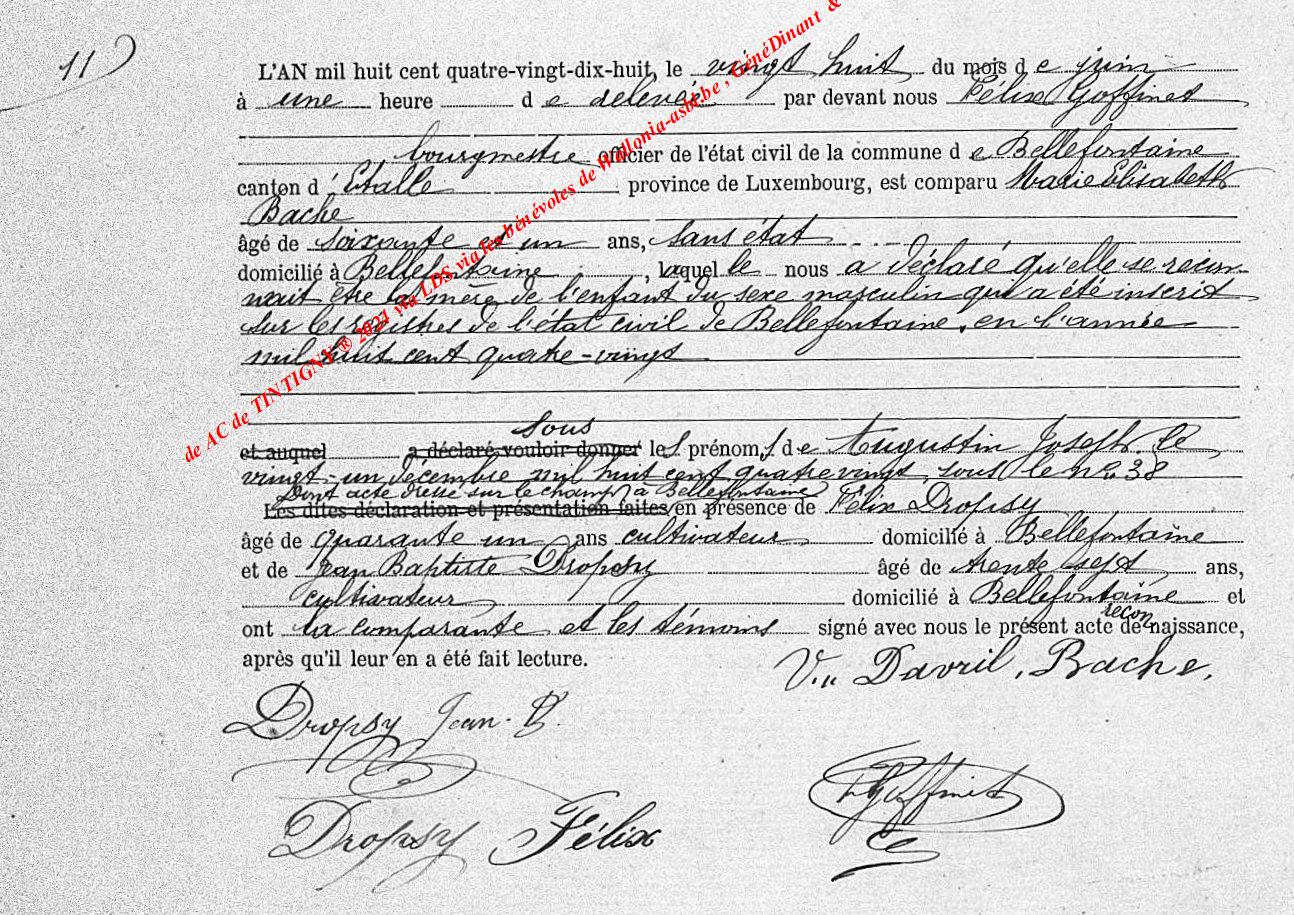 11
L'AN mil huit cent quatre-vingt-dix-huit, le vingt huit du mois de juin
à une heure de relevée par devant nous Félix Goffinet
bourgmestre officier de l'état civil de la commune de Bellefontaine
canton d'Etalle province de Luxembourg, est comparu Marie Elisabeth
Bache
âgé de soixante et un ans, sans état
domicilié à Bellefontaine, laquelle nous a déclaré qu'elle se recon-
nait être la mère de l'enfant du sexe masculin qui a été inscrit
sur les registres de l'état civil de Bellefontaine, en l'année
mil huit cent quatre-vingt
sous
et auquel a déclaré vouloir donner les prénoms de Augustin Joseph, le
vingt-un décembre mil huit cent quatre vingt, sous le no 38
Dont acte dressé sur le champ à Bellefontaine
Les dites déclaration et présentation faites en présence de Félix Dropsy
âgé de quarante un ans cultivateur domicilié à Bellefontaine
et de Jean Baptiste Dropsy âgé de trente sept ans,
cultivateur domicilié à Bellefontaine et
recon
ont la comparante et les témoins signé avec nous le présent acte de naissance,
après qu'il leur en a été fait lecture.
V.ve Davril, Bache,
Dropsy Jean-B.
Dropsy Félix
F Goffinet
de AC de TINTIGNY ® 2021 via LDS, via les bénévoles de Wallonia-asbl.be , GénéDinant &